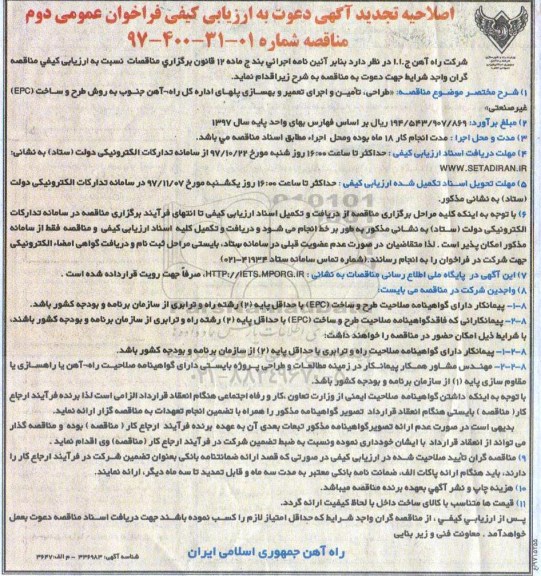 اصلاحیه تجدید آگهی دعوت به ارزیابی کیفی فراخوان عمومی دوم
مناقصه شماره ۰۱-۳۱-۴۰۰-۹۷
شرکت راه آهن ج.ا.ا در نظر دارد بنابر آئین نامه اجرائی بند ج ماده ۱۲ قانون برگزاری مناقصات نسبت به ارزیابی کیفی مناقصه
گران واجد شرایط جهت دعوت به مناقصه به شرح زیر اقدام نماید.
۱) شرح مختصر موضوع مناقصه: «طراحی، تأمین و اجرای تعمیر و بهسازی پلهای اداره کل راه-آهن جنوب به روش طرح و ساخت (EPC)
غیرصنعتی»
۲) مبلغ برآورد: ۱۹۴/۵۴۳/۹۰۷/۸۶۹ ریال بر اساس فهارس بهای واحد پایه سال ۱۳۹۷
۳) مدت و محل اجرا : مدت انجام کار ۱۸ ماه بوده ومحل اجراء مطابق اسناد مناقصه می باشد.
۴) مهلت دریافت اسناد ارزیابی کیفی : حداکثر تا ساعت ۱۶:۰۰ روز شنبه مورخ ۹۷/۱۰/۲۲ از سامانه تدارکات الکترونیکی دولت (ستاد) به نشانی:
WWW.SETADIRAN.IR
۵) مهلت تحویل اسناد تکمیل شده ارزیابی کیفی : حداکثر تا ساعت ۱۶:۰۰ روز یکشنبه مورخ ۹۷/۱۱/۰۷ در سامانه تدارکات الکترونیکی دولت
(ستاد) به نشانی مذکور.
۶) با توجه به اینکه کلیه مراحل برگزاری مناقصه از دریافت و تکمیل اسناد ارزیابی کیفی تا انتهای فرآیند برگزاری مناقصه در سامانه تدارکات
الکترونیکی دولت (ستاد) به نشانی مذکور به طور بر خط انجام می شود و دریافت و تکمیل کلیه اسناد ارزیابی کیفی و مناقصه فقط از سامانه
مذکور امکان پذیر است . لذا متقاضیان در صورت عدم عضویت قبلی در سامانه ستاد، بایستی مراحل ثبت نام و دریافت گواهی امضاء الکترونیکی
جهت شرکت در فراخوان را به انجام رسانند.(شماره تماس سامانه ستاد ۴۱۹۳۴-۰۲۱)
۷) این آگهی در پایگاه ملی اطلاع رسانی مناقصات به نشانی : HTTP://IETS.MPORG.IR، صرفاً جهت رویت قرارداده شده است .
۸) واجدین شرکت در مناقصه می بایست:
۸-۱- پیمانکار دارای گواهینامه صلاحیت طرح و ساخت (EPC) با حداقل پایه (۲) رشته راه و ترابری از سازمان برنامه و بودجه کشور باشد.
۸-۲- پیمانکارانی که فاقد گواهینامه صلاحیت طرح و ساخت (EPC) با حداقل پایه (۲) رشته راه و ترابری از سازمان برنامه و بودجه کشور باشند،
با شرایط ذیل امکان حضور در مناقصه را خواهند داشت:
۸-۲-۱- پیمانکار دارای گواهینامه صلاحیت راه و ترابری با حداقل پایه (۲) از سازمان برنامه و بودجه کشور باشد.
۸-۲-۲- مهندس مشاور همکار پیمانکار در زمینه مطالعات و طراحی پروژه بایستی دارای گواهینامه صلاحیت راه-آهن یا راهسازی یا
مقاوم سازی پایه (۱) از سازمان برنامه و بودجه کشور باشد.
با توجه به اینکه داشتن گواهینامه صلاحیت ایمنی از وزارت تعاون ،کار و رفاه اجتماعی هنگام انعقاد قرارداد الزامی است لذا برنده فرآیند ارجاع
کار( مناقصه ) بایستی هنگام انعقاد قرارداد تصویر گواهینامه مذکور را همراه با تضمین انجام تعهدات به مناقصه گزار ارائه نماید.
بدیهی است در صورت عدم ارائه تصویر گواهینامه مذکور تبعات بعدی آن به عهده برنده فرآیند ارجاع کار ( مناقصه ) بوده و مناقصه گذار
می تواند از انعقاد قرارداد با ایشان خودداری نموده ونسبت به ضبط تضمین شرکت در فرآیند ارجاع کار ( مناقصه) وی اقدام نماید .
۹) مناقصه گران تأیید صلاحیت شده در ارزیابی کیفی در صورتی که قصد ارائه ضمانتنامه بانکی بعنوان تضمین شرکت در فرآیند ارجاع کار را
دارند، باید هنگام ارائه پاکات الف، ضمانت نامه بانکی معتبر به مدت سه ماه و قابل تمدید تا سه ماه دیگر، ارائه نمایند.
۱۰) هزینه چاپ و نشر آگهی بعهده برنده مناقصه میباشد.
۱۱) قیمت ها متناسب با کالای ساخت داخل با لحاظ کیفیت ارائه گردد.
پس از ارزیابی کیفی ، از مناقصه گران واجد شرایط که حداقل امتیاز لازم را کسب نموده باشند جهت دریافت اسناد مناقصه دعوت بعمل
خواهدآمد . معاونت فنی و زیر بنایی
راه آهن جمهوری اسلامی ایران
شناسه آگهی: ۳۳۶۹۸۳ - م الف:۳۶۴۷